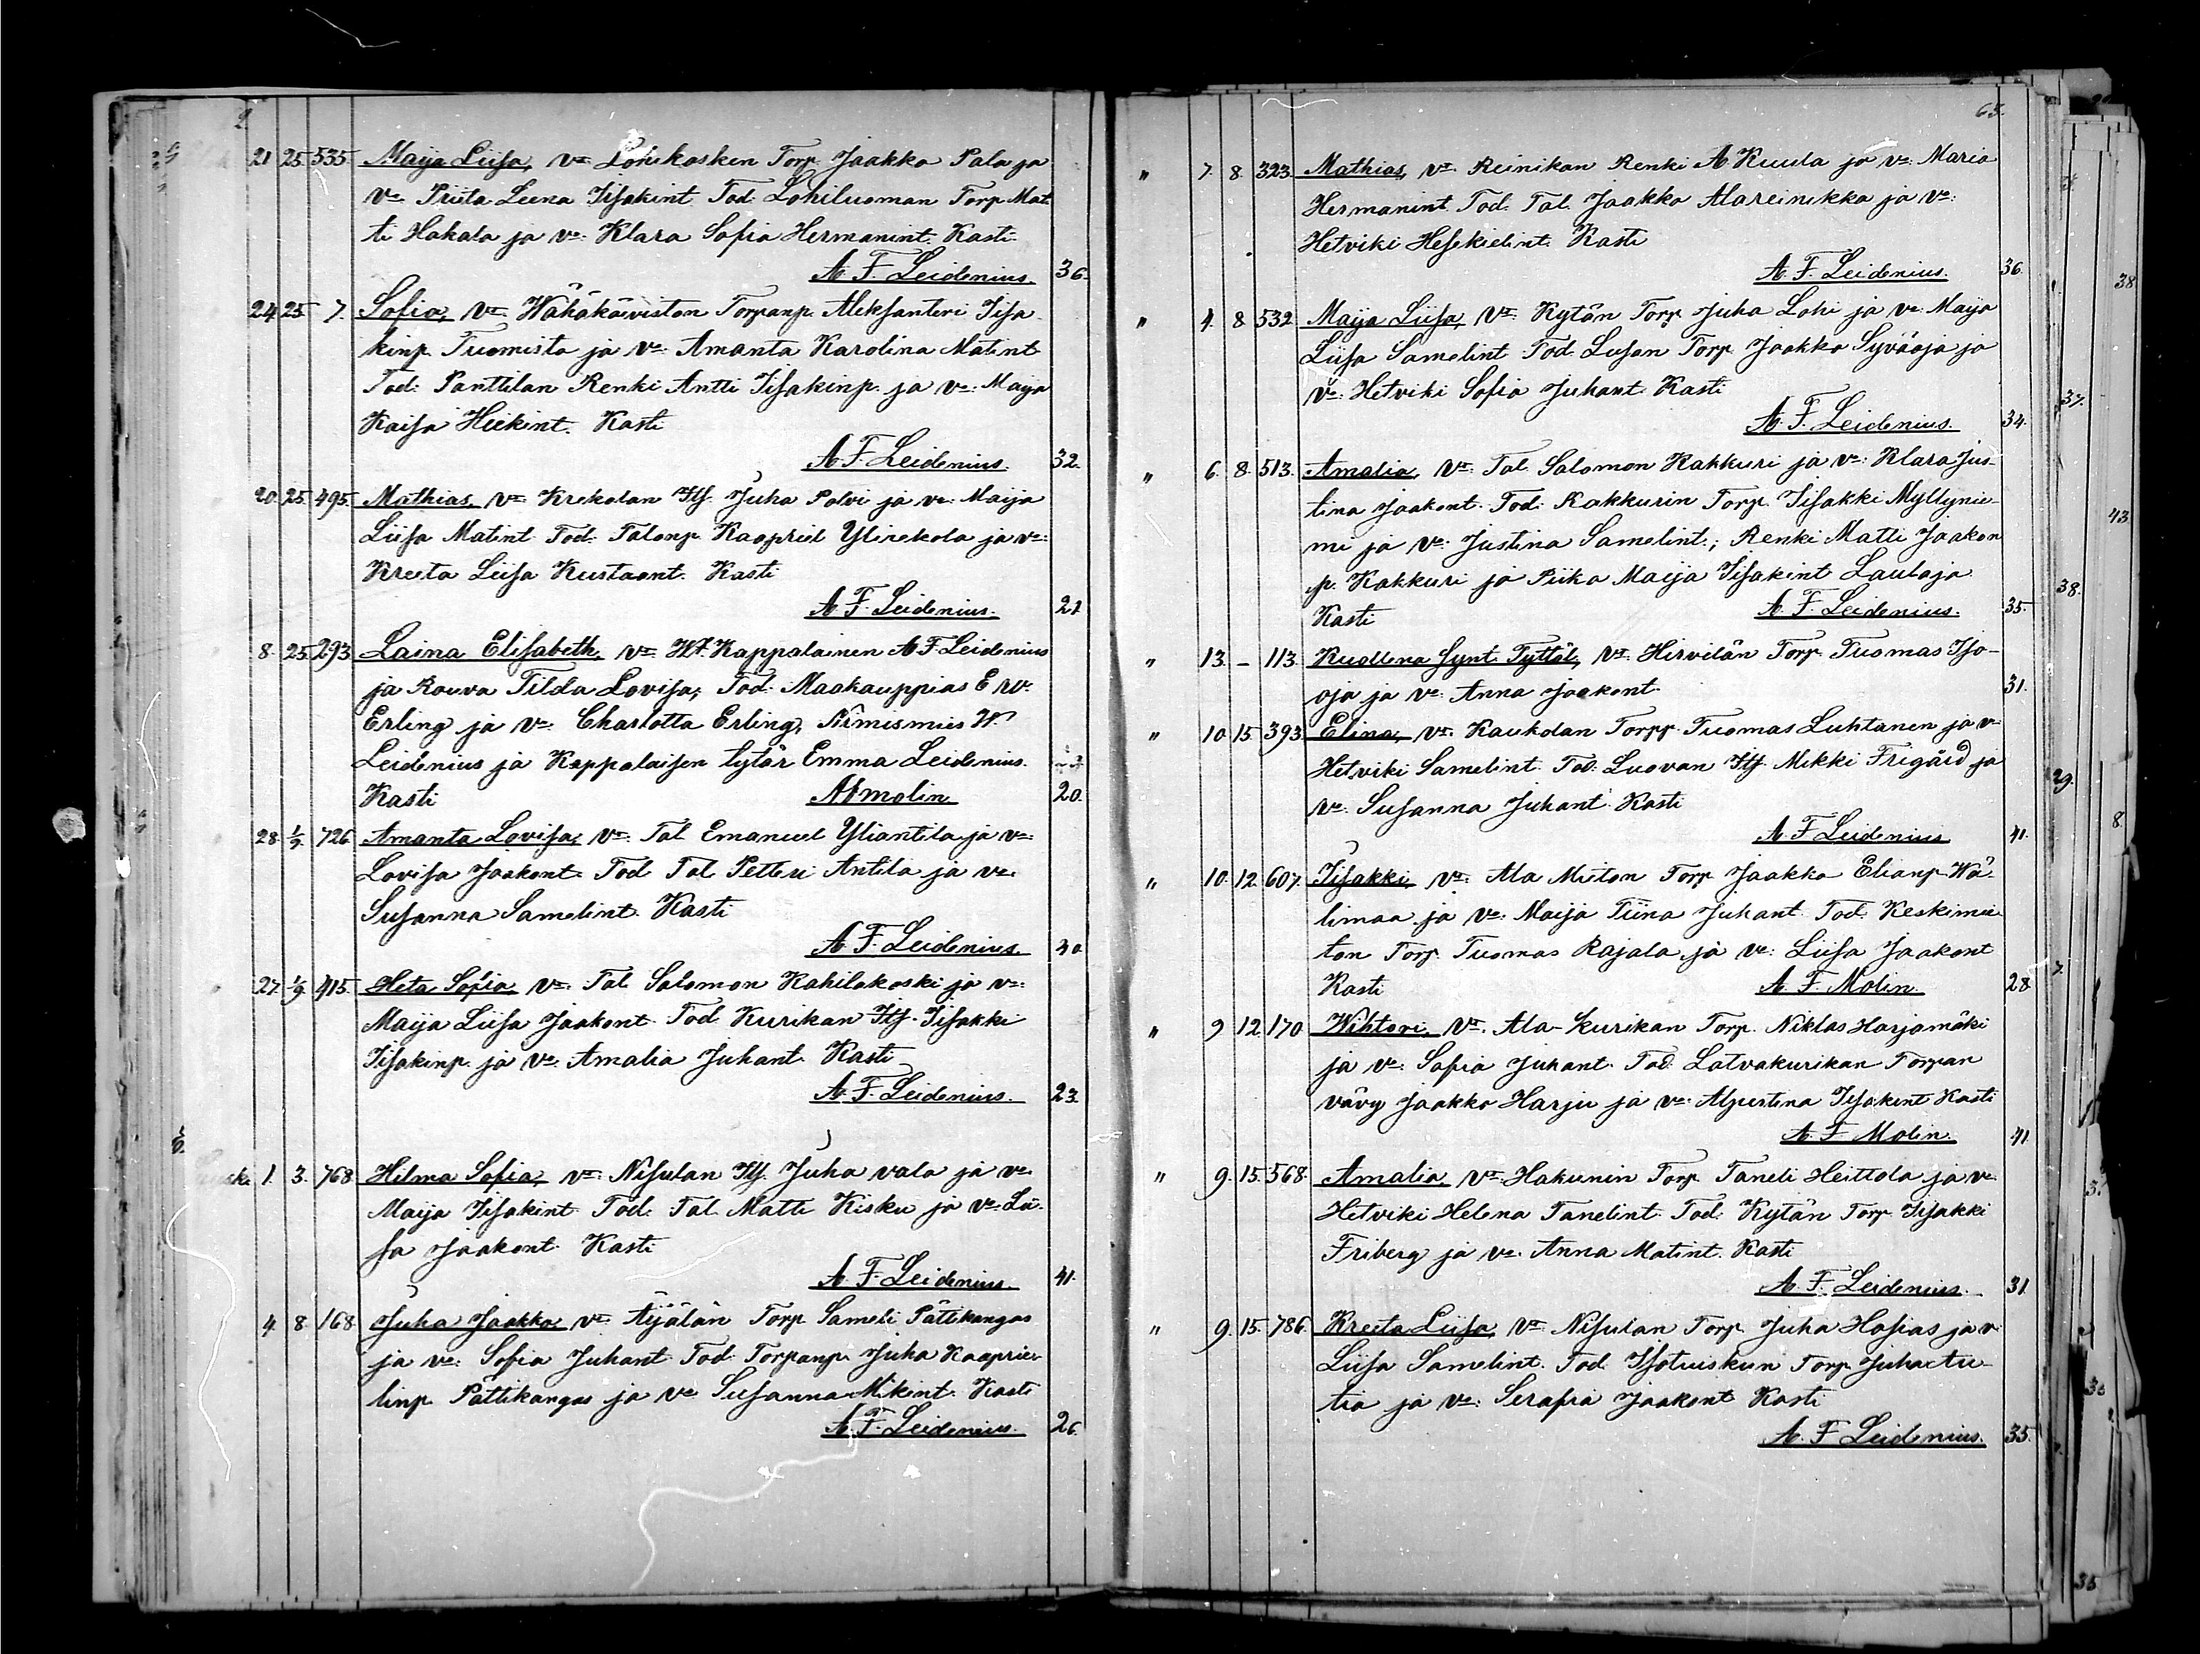 21 25 535 Maija Liisa, v:a Lohikosken Torp Jaakko Pala ja
v:o Priita Leena Iisakint Tod: Lohiluoman Torp Mat
ti Hakala ja v:o Klara Sofia Hermanint. Kasti
A. F. Leidenius. 36.
24 25 7. Sofia, v:a Wähäkäiviston Torpanp. Aleksanteri Iisa
kinp. Tuomisto ja v:o Amanta Karolina Matint
Tod: Panttilan Renki Antti Iisakinp. ja v:o Maija
Kaisa Heikint. Kasti
A F. Leidenius. 32.
20 25 495 Mathias, v:a Krekolan Itj. Juha Polvi ja v:o Maija
Liisa Matint Tod: Talonp. Kaapriel Ylirekola ja v:o
Kreeta Liisa Kustaant. Kasti
A. F. Leidenius. 21
8. 25 293 Laina Elisabeth, v:a Kappalainen A F. Leidenius
ja Rouva Tilda Lovisa, Tod: Maakauppias E W.
Erling ja v:o Charlotta Erling, Nimismies
Leidenius ja Kappalaisen tytär Emma Leidenius.
Kasti A Molin 20.
28 1/9 726 Amanta Lovisa, v:a Tal Emanuel Yliantila ja v:o
Lovisa Jaakont Tod Tal Petteri Antila ja v:o
Susanna Samelint. Kasti
A. F. Leidenius. 40.
27 1/9 415. Heta Sofia v:a Tal Salomon Kahilakoski ja v:o
Maija Liisa Jaakont Tod Kurikan Itj. Iisakki
Iisakinp. ja v:o Amalia Juhant. Kasti
A. F. Leidenius. 23.
1. 3. 768 Hilma Sofia, v:a Nisulan Itj. Juha vala ja v:o
Maija Iisakint Tod. Tal Matti Kisku ja v:o Lii-
sa Jaakont Kasti
A. F. Leidenius. 41.
4. 8 168 Juha Jaakko v:a Äijälän Torp Sameli Pättikangas
ja v:o Sofia Juhant Tod Torpanp. Juha Kaaprie-
linp. Pättikangas ja v:o Susanna Mikint. Kasti
A. F. Leidenius. 26.
65.
" 7. 8. 323 Mathias, v:a Reinikan Renki A Kuula ja v:o Maria
Hermanint Tod. Tal. Jaakko Alareinikka ja v:o
Hetviki Hesekielint. Kasti
A. F. Leidenius. 36.
" 4. 8 532 Maija Liisa, v:a Kytän Torp Juha Lohi ja v:o Maija
Liisa Samelint Tod. Luson Torp Jaakko Syväoja ja
v:o Hetviki Sofia Juhant Kasti
A. F. Leidenius. 34.
" 6. 8. 513. Amalia, v:a Tal. Salomon Kakkuri ja v:o Klara Jus-
tina Jaakont. Tod. Kakkurin Torp. Iisakki Myllynie-
mi ja v:o Justina Samelint.; Renki Matti Jaakon
p. Kakkuri ja Piika Maija Iisakint Laulaja
Kasti A. F. Leidenius. 35.
" 13. - 113. Kuollena Synt. Tyttöl., v:a Hirvelän Torp Tuomas Iso-
oja ja v:o Anna Jaakont. 31.
" 10. 15. 393 Elina, v:a Kaukolan Torpp Tuomas Luhtanen ja v:o
Hetviki Samelint. Tod. Luovan Itj. Mikki Frigård ja
v:o Susanna Juhant Kasti
A. F. Leidenius 41.
" 10. 12. 607. Iisakki v:a Ala Mieton Torp Jaakko Elianp Wä-
limaa ja v:o Maija Tiina Juhant Tod. Keskimie
ton Torp. Tuomas Rajala ja v:o Liisa Jaakont
Kasti A. F. Molin. 28
" 9 12 170 Wihtori, v:a Ala-Kurikan Torp. Niklas Harjamäki
ja v:o Sofia Juhant Tod. Latvakurikan Torpan
vävy Jaakko Harju ja v:o Alpertina Iisakint Kasti
A. F. Molin. 41
" 9. 15. 568. Amalia, v:a Hakunin Torp Taneli Heittola ja v:o
Hetviki Helena Tanelint Tod: Kytän Torp Iisakki
Friberg ja v:o Anna Matint. Kasti
A. F. Leidenius. 31
" 9. 15. 786. Kreeta Liisa v:a Nisulan Torp. Juha Hosias ja v:o
Liisa Samelint. Tod. Isotuiskun Torp Juha
tia ja v:o Serafia Jaakont Kasti
A. F. Leidenius. 35.